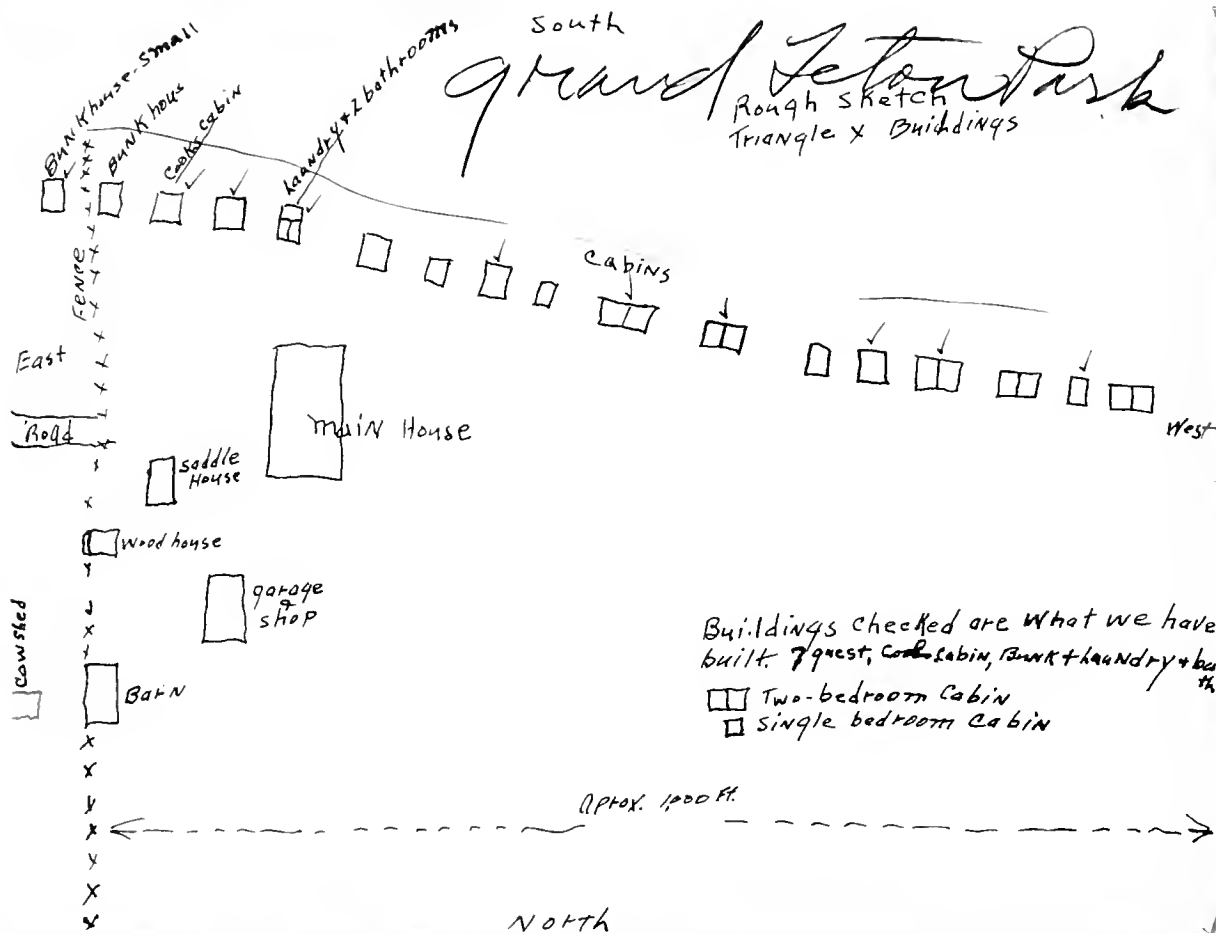 South
Grand Teton Park
Rough Sketch
Triangle X Buildings
Bunkhouse-small
Bunk hous
Cooks Cabin
Laundry & 2 bathrooms
Cabins
Fence
East
Road
Main House
West
Saddle
House
Wood house
garage
&
shop
Cowshed
Barn
Buildings checked are what we have
built. 7 guest, Cook Cabin, Bunk + Laundry + ba
th
Two-bedroom Cabin
Single bedroom Cabin
Aprox. 1,000 Ft.
North